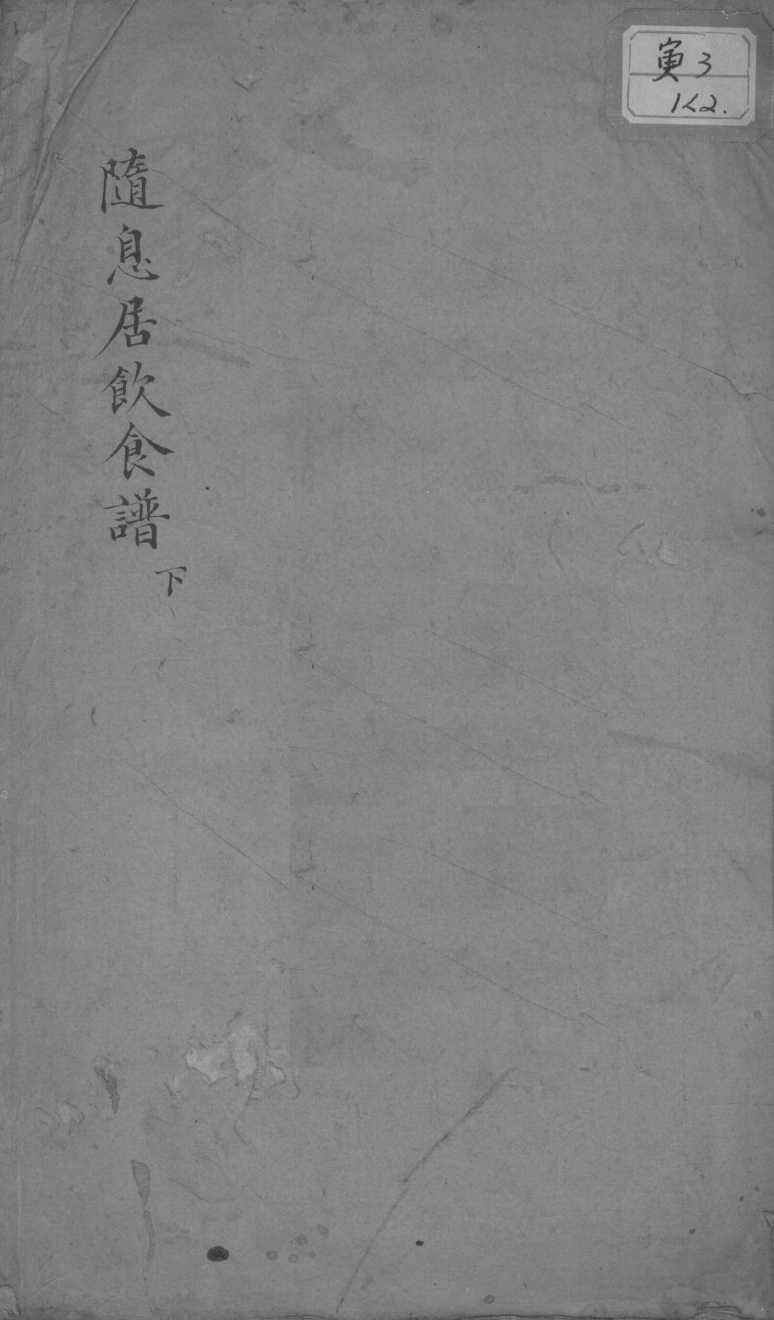 寅3
1<2.
隨息居飲食譜
下